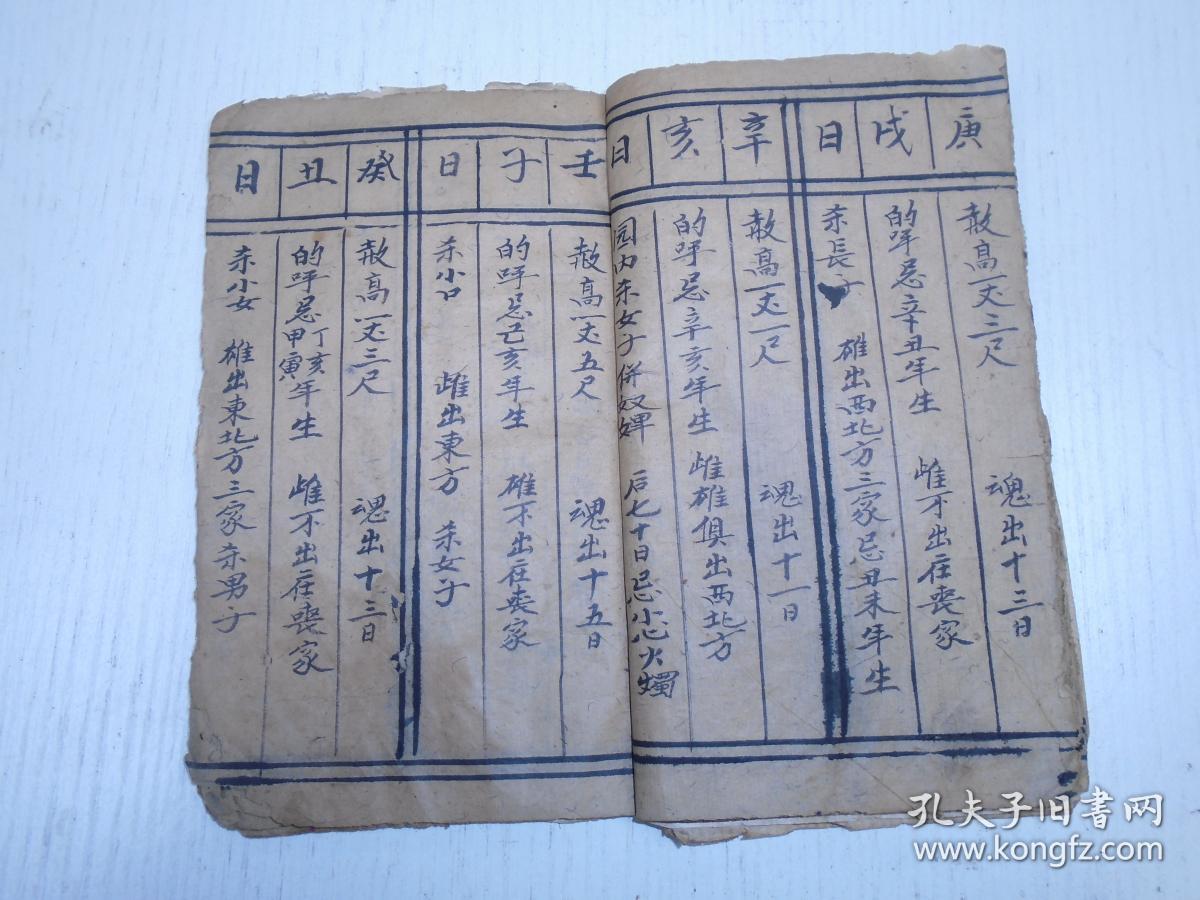 庚戌日
煞高一丈三尺 魂出十三日
的呼忌辛丑年生 雌不出在丧家
杀長子 雄出西北方三家忌丑未年生
辛亥日
煞高一丈一尺 魂出十一日
的呼忌辛亥年生 雌雄俱出西北方
园内杀女子併奴婢 后七十日忌小心火燭
壬子日
煞高一丈五尺 魂出十五日
的呼忌己亥年生 雄不出在丧家
杀小口 雌出東方 杀女子
癸丑日
煞高一丈三尺 魂出十三日
的呼忌丁亥甲寅年生 雌不出在丧家
杀小女 雄出東北方三家杀男子
孔夫子旧书网
www.kongfz.com